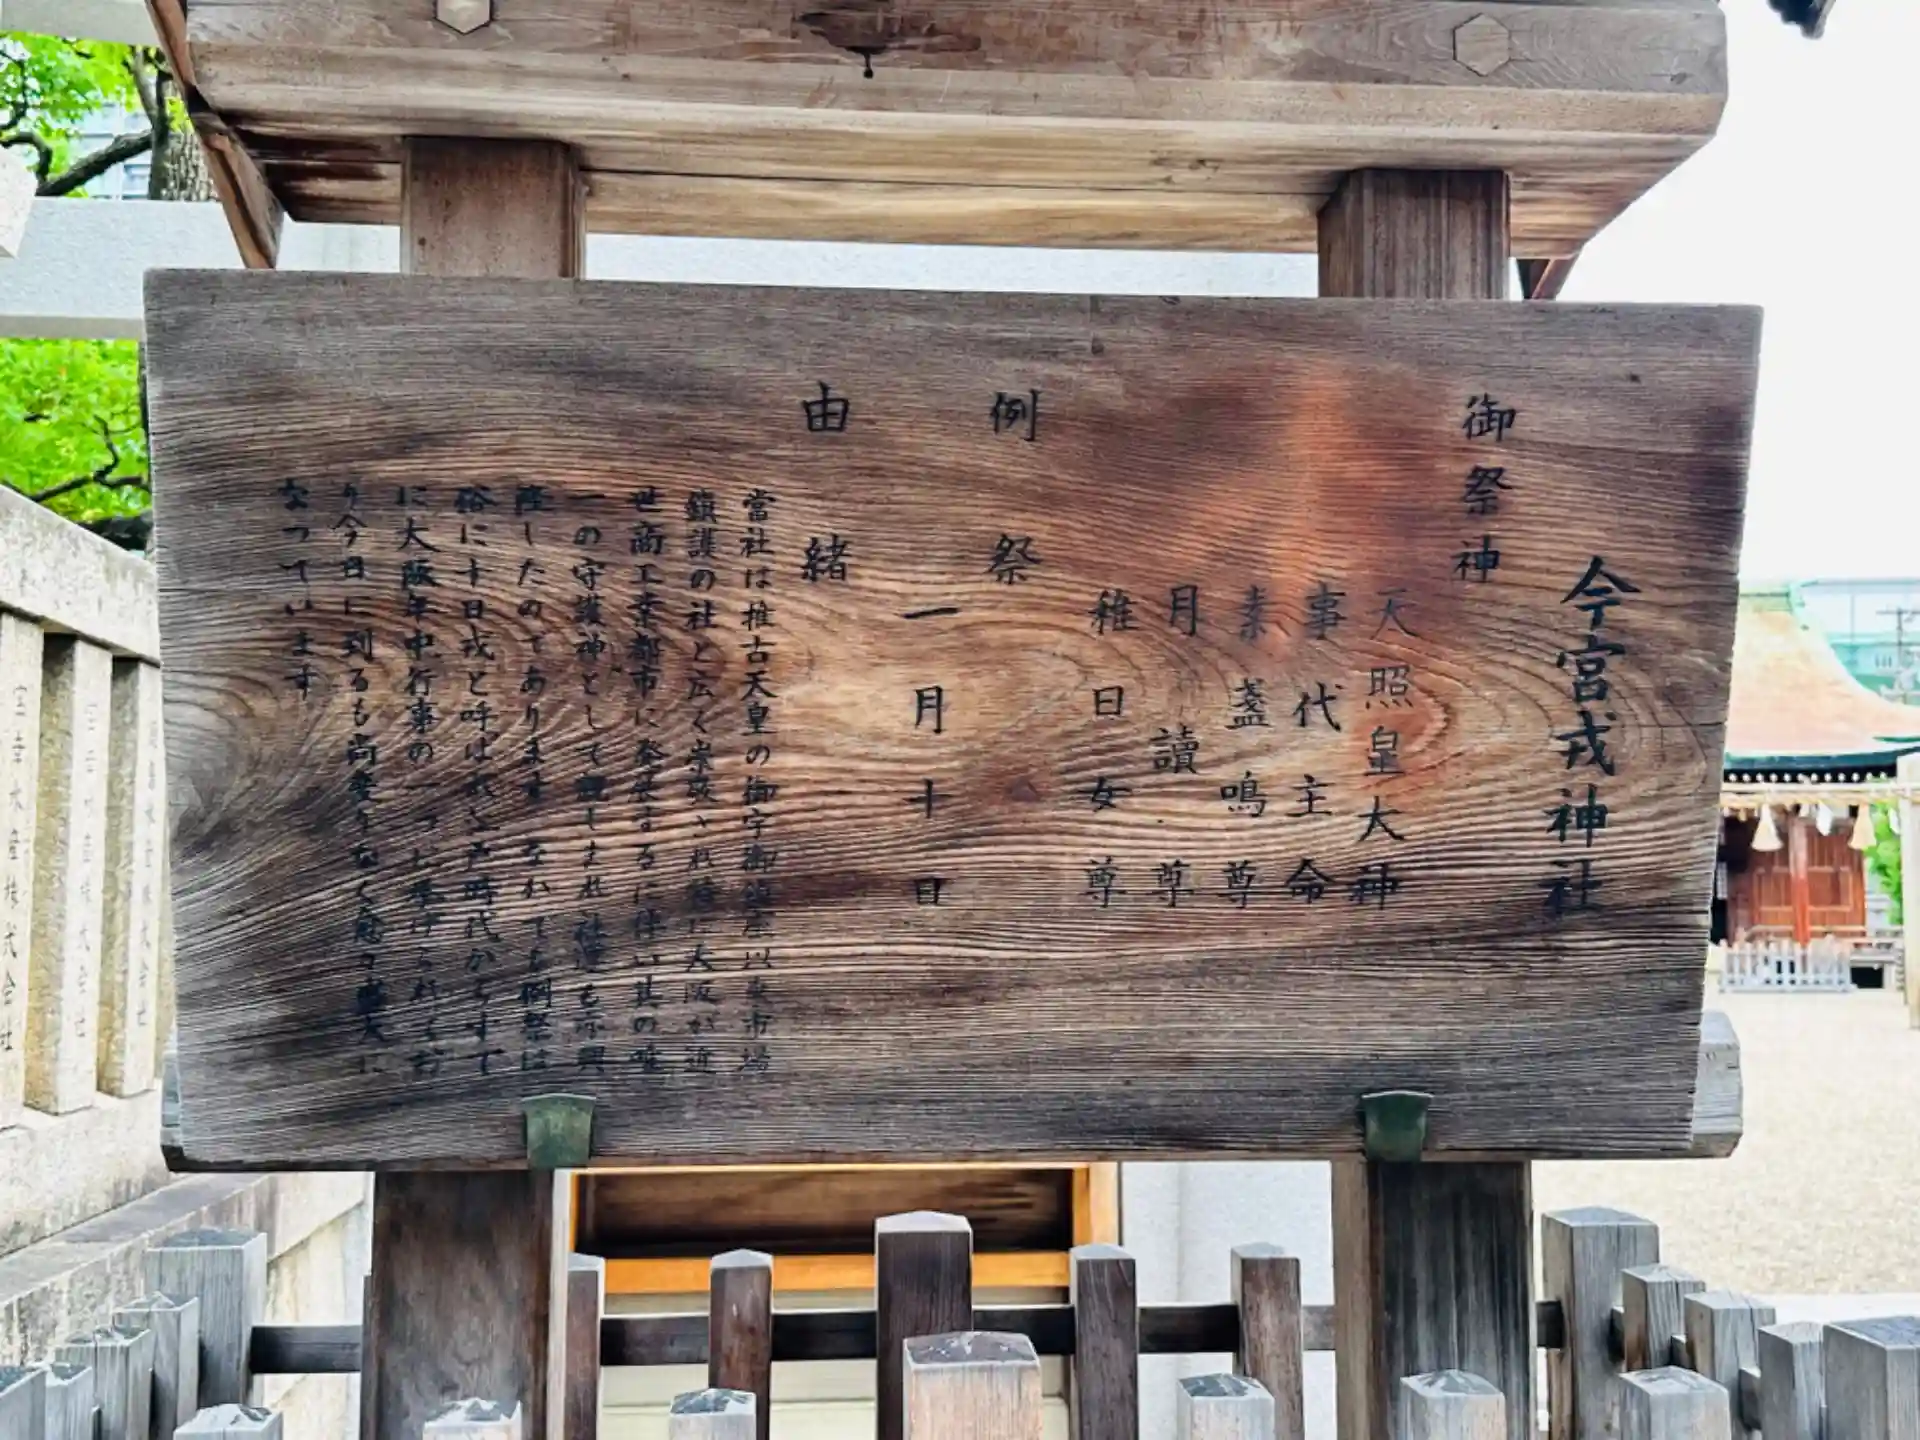 今宮戎神社
御祭神
天照皇大神
事代主命
素盞鳴尊
月讀尊
稚日女尊
例祭
一月十日
由緒
當社は推古天皇の御宇御鎮座以来市場
鎮護の社と広く崇敬され特に大阪が近
世商工業都市に発展するに伴い其の唯
一の守護神として親しまれ社運も亦興
隆したのであります なかでも例祭は
俗に十日戎と呼ばれ江戸時代からすで
に大阪年中行事の一つに挙げられて居
り今日に到るも尚変りなく愈々盛大に
なっています
株式会社